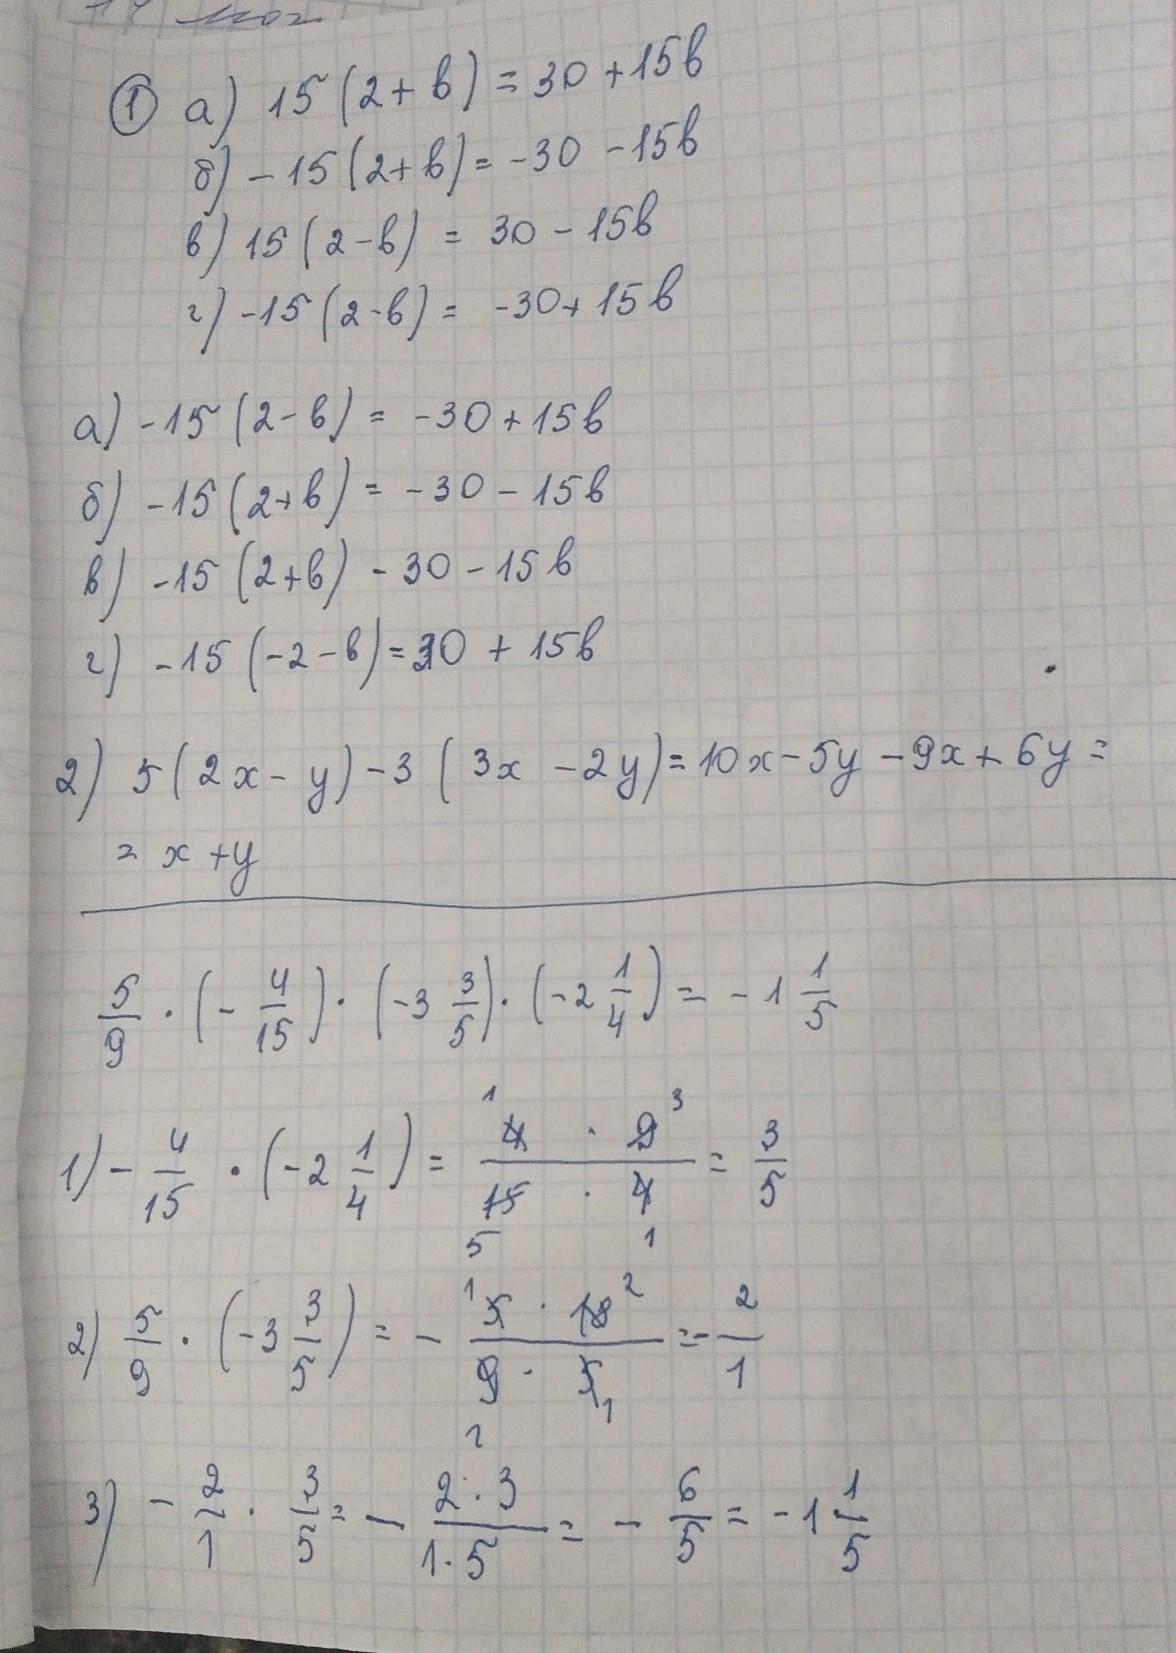 ① а) 15(2+b) = 30 + 15b
б) -15(2+b) = -30 - 15b
в) 15(2-b) = 30 - 15b
г) -15(2-b) = -30 + 15b
а) -15(2-b) = -30 + 15b
б) -15(2+b) = -30 - 15b
в) -15(2+b) - 30 - 15b
г) -15(-2-b) = 30 + 15b
2) 5(2x - y) - 3(3x - 2y) = 10x - 5y - 9x + 6y =
= x + y
5/9 · (- 4/15) · (-3 3/5) · (-2 1/4) = -1 1/5
1) - 4/15 · (-2 1/4) = 4 · 9 / 15 · 4 = 3/5
2) 5/9 · (-3 3/5) = - 5 · 18 / 9 · 5 = - 2/1
3) - 2/1 · 3/5 = - 2 · 3 / 1 · 5 = - 6/5 = -1 1/5